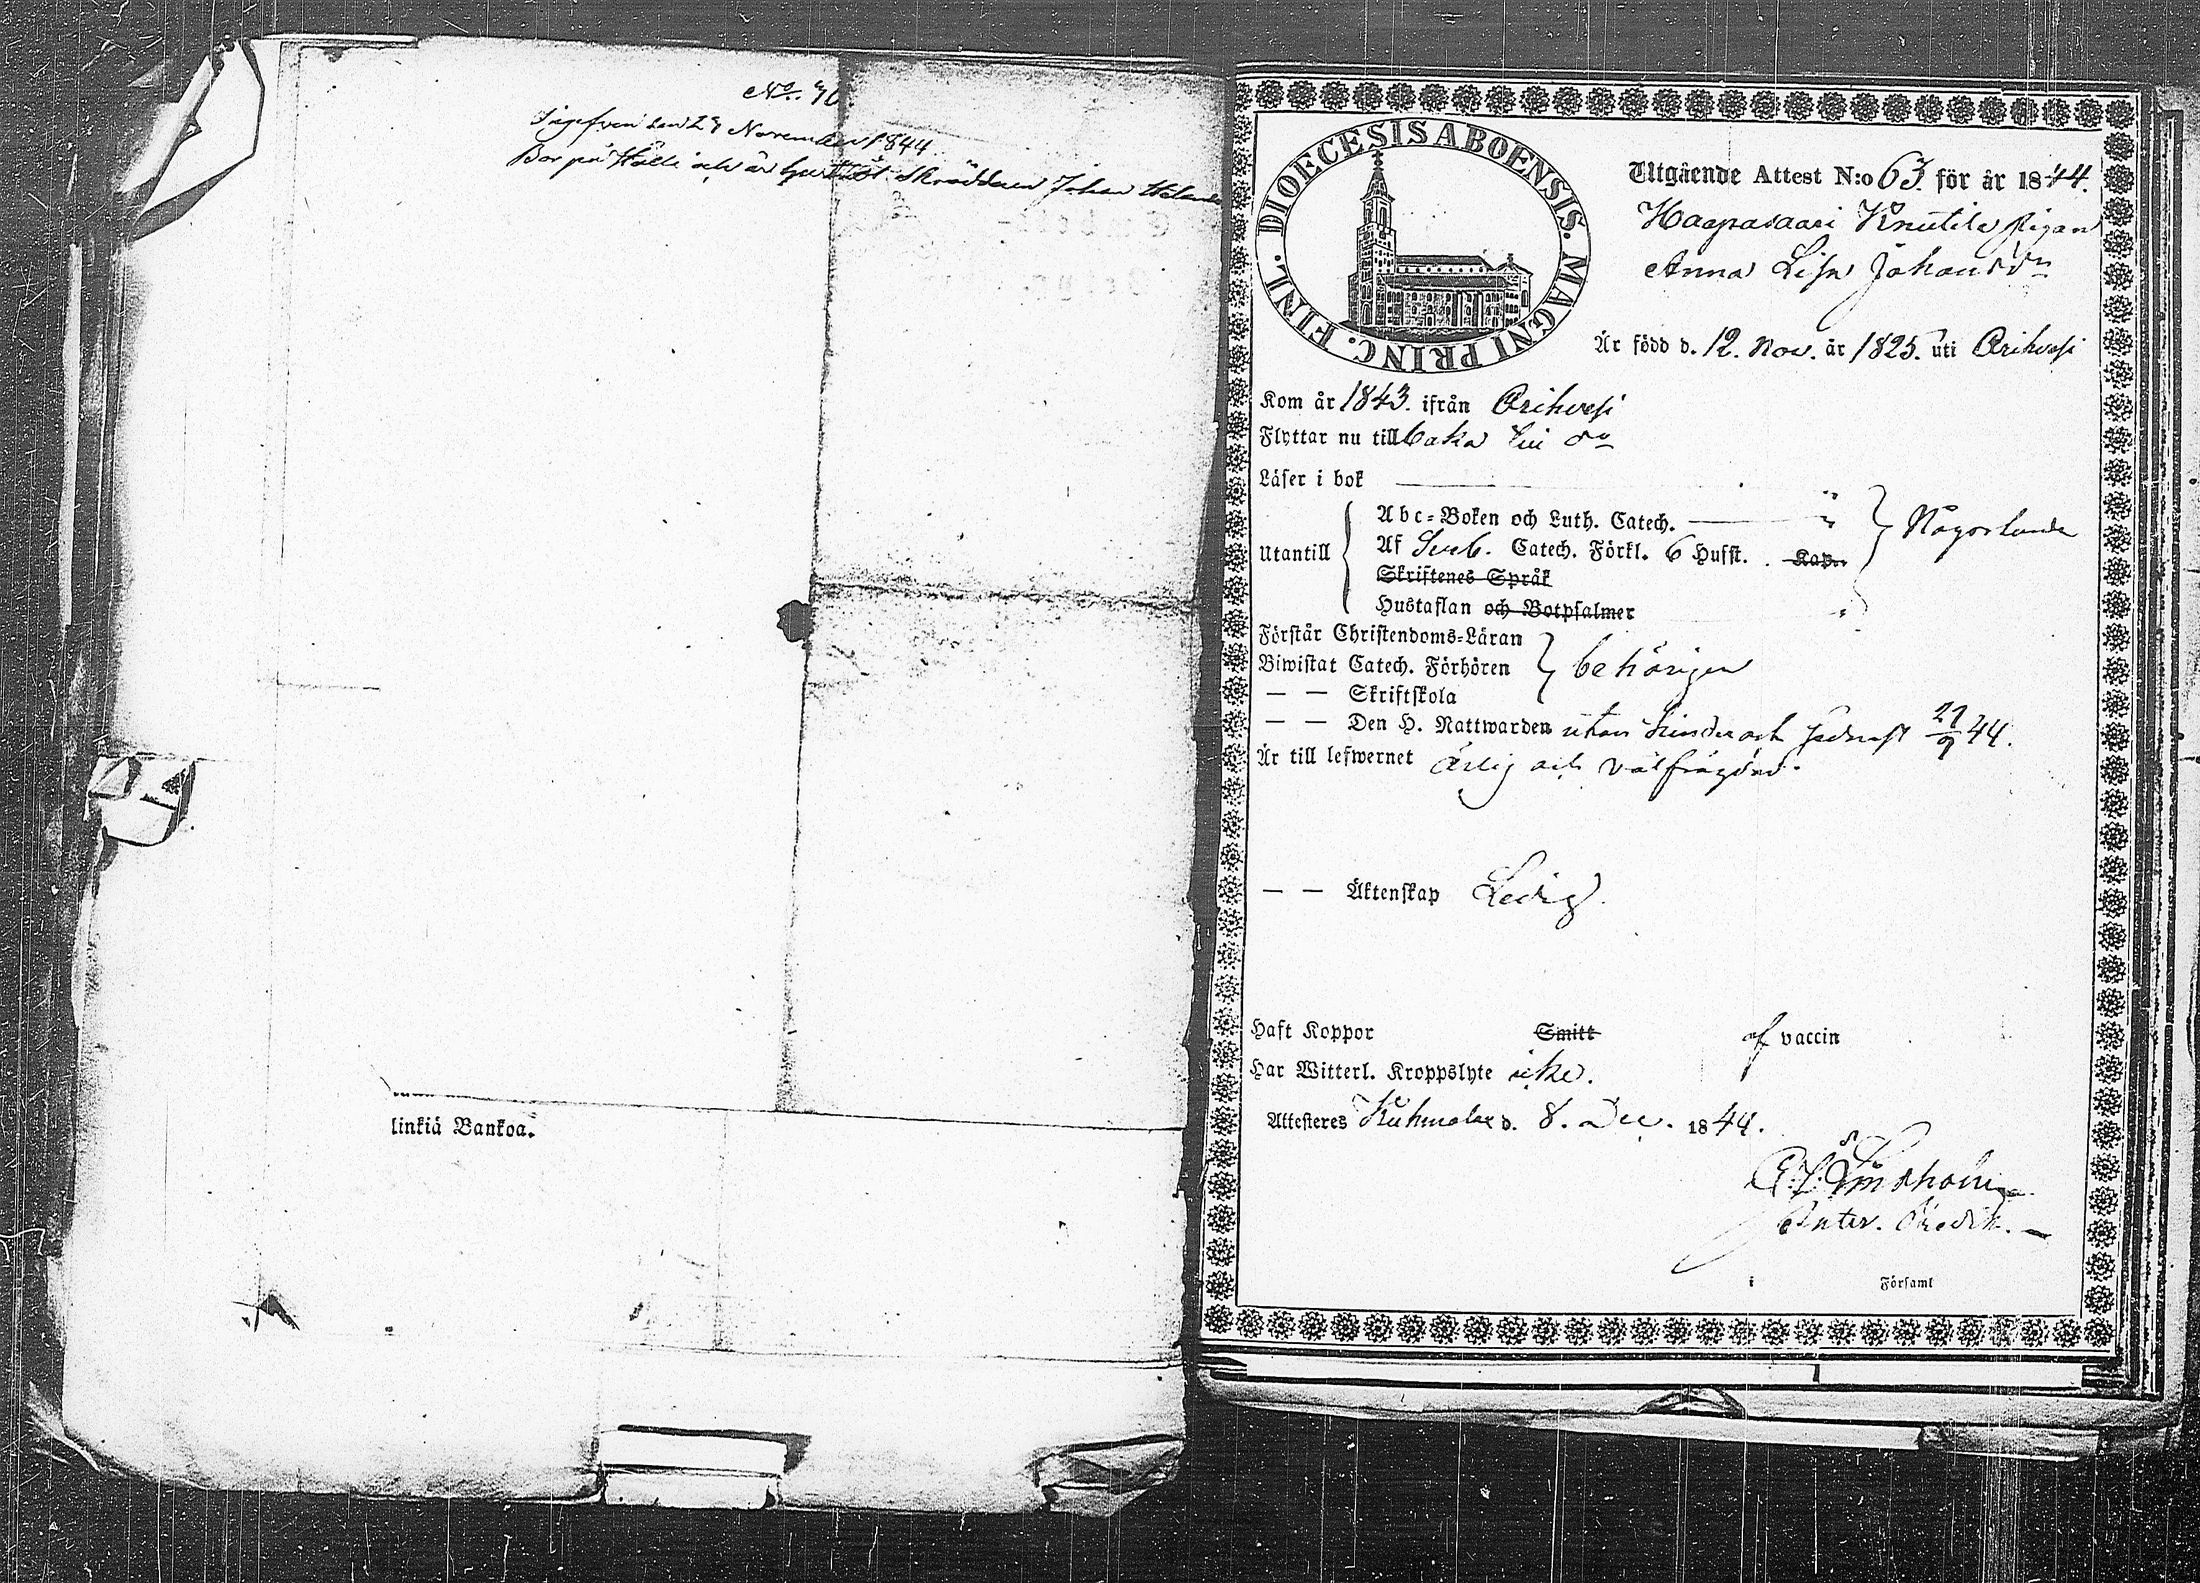 No. 76
Ingifven den 27 November 1844
Bor på Hälli och är hos skräddaren Johan
linkiä Bankoa.
DIOECESIS ABOENSIS. MAGNI PRINC. FINL.
Utgående Attest N:o 63. för år 1844.
Haapasaari Knutila pigan
Anna Lisa Johansdr
Är född d. 12. Nov. är 1825. uti Orihvesi
Kom år 1843. ifrån Orihvesi
Flyttar nu tillbaka till do
Läser i bok
Utantill
Abc-Boken och Luth. Catech.
Af Sveb. Catech. Förkl. 6 Hufst. Kap.
Skriftenes Språk
Hustaflan och Botpsalmer
Någorlunda
Förstår Christendoms-Läran
Biwistat Catech. Förhören
behörigen
— — Skriftskola
— — Den H. Nattwarden utan hinder och sednast 29/9 44.
Är till lefwernet ärlig och välfrägdad.
— — Äktenskap Ledig.
Haft Koppor Smitt af vaccin
Har Witterl. Kroppslyte icke.
Attesteres Kuhmalax d. 8. Dec. 1844.
Församl